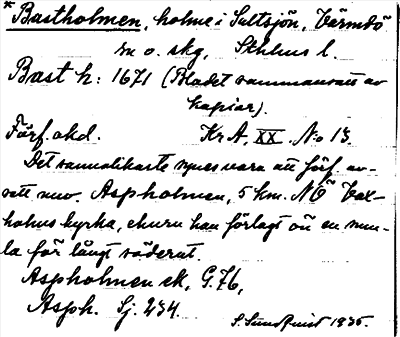 * Bastholmen, holme i Saltsjön, Värmdö
sn o. skg, Sthlms l.
Bast h: 1671 (Bladet sammansatt av
kopior).
Förf. okd. Kr A, XX. No 13.
Det sannolikaste synes vara att förf. av-
sett nuv. Aspholmen, 5 km. NÖ Vax-
holms kyrka, ehuru han förlagt ön en smu-
la för långt söderut.
Aspholmen ek, G. 76,
Asph. Sj. 234.
S. Sundquist 1935.